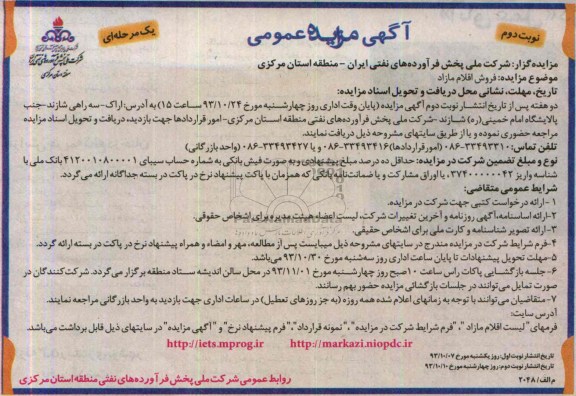 نوبت دوم
آگهی مزایده عمومی
یک مرحله‌ای
شرکت ملی پخش فرآورده‌های نفتی ایران
منطقه استان مرکزی
مزایده‌گزار: شرکت ملی پخش فرآورده‌های نفتی ایران - منطقه استان مرکزی
موضوع مزایده: فروش اقلام مازاد
تاریخ، مهلت، نشانی محل دریافت و تحویل اسناد مزایده:
دو هفته پس از تاریخ انتشار نوبت دوم آگهی مزایده (پایان وقت اداری روز چهارشنبه مورخ ۹۳/۱۰/۲۴ ساعت ۱۵) به آدرس: اراک- سه راهی شازند -جنب
پالایشگاه امام خمینی(ره) شازند -شرکت ملی پخش فرآورده‌های نفتی منطقه استان مرکزی- امور قراردادها جهت بازدید، دریافت و تحویل اسناد مزایده
مراجعه حضوری نموده و یا از طریق سایتهای مشروحه ذیل دریافت نمایند.
تلفن تماس: ۳۳۴۹۳۳۱۰-۰۸۶ (امور قراردادها) ۳۳۴۹۳۴۱۶-۰۸۶ و یا ۳۳۴۹۳۴۲۷-۰۸۶ (واحد بازرگانی)
نوع و مبلغ تضمین شرکت در مزایده: حداقل ده درصد مبلغ پیشنهادی و به صورت فیش بانکی به شماره حساب سیبای ۴۱۲۰۰۱۰۸۰۰۰۰۱ بانک ملی با
شناسه واریز ۳۷۴۰۰۰۰۰۰۴۲، یا اوراق مشارکت و یا ضمانت‌نامه بانکی که همزمان با پاکت پیشنهاد نرخ در پاکت در بسته جداگانه ارائه می‌گردد.
شرایط عمومی متقاضی:
۱-ارائه درخواست کتبی جهت شرکت در مزایده.
۲-ارائه اساسنامه، آگهی روزنامه و آخرین تغییرات شرکت، لیست اعضاء هیئت مدیره برای اشخاص حقوقی.
۳-ارائه تصویر شناسنامه و کارت ملی برای اشخاص حقیقی.
۴-فرم شرایط شرکت در مزایده مندرج در سایتهای مشروحه ذیل میبایست پس از مطالعه، مهر و امضاء و همراه پیشنهاد نرخ در پاکت در بسته ارائه گردد.
۵-مهلت تحویل پیشنهادات تا پایان ساعت اداری روز سه‌شنبه مورخ ۹۳/۱۰/۳۰ می‌باشد.
۶-جلسه بازگشایی پاکات راس ساعت ۱۰ صبح روز چهارشنبه مورخ ۹۳/۱۱/۰۱ در محل سالن اندیشه ستاد منطقه برگزار می گردد. شرکت‌کنندگان در
صورت تمایل می‌توانند در جلسات بازگشائی مزایده حضور بهم رسانند.
۷-متقاضیان می‌توانند با توجه به زمانهای اعلام شده همه روزه (به جز روزهای تعطیل) در ساعات اداری جهت بازدید به واحد بازرگانی مراجعه نمایند.
آدرس سایت:
فرمهای "لیست اقلام مازاد"، "فرم شرایط شرکت در مزایده"، "نمونه قرارداد"، "فرم پیشنهاد نرخ" و "آگهی مزایده" در سایتهای ذیل قابل برداشت می‌باشد.
http://iets.mprog.ir http://markazi.niopdc.ir
تاریخ انتشار نوبت اول: روز یکشنبه مورخ ۹۳/۱۰/۰۷
تاریخ انتشار نوبت دوم: روز چهارشنبه مورخ ۹۳/۱۰/۱۰
م الف/۲۰۴۸
روابط عمومی شرکت ملی پخش فرآورده‌های نفتی منطقه استان مرکزی